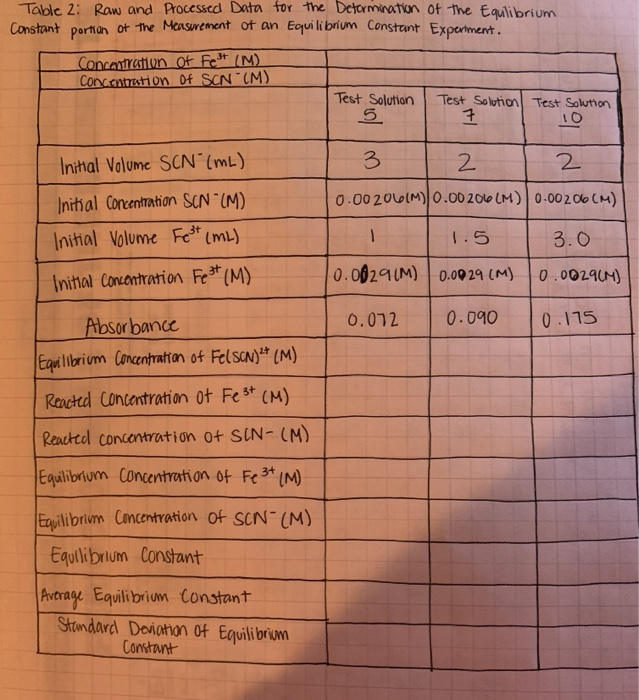 Table 2: Raw and Processed Data for the Determination of the Equilibrium
Constant portion of the Measurement of an Equilibrium Constant Experiment.
Concentration of Fe³⁺ (M)
Concentration of SCN⁻ (M)
Test Solution 5 Test Solution 7 Test Solution 10
Initial Volume SCN⁻ (mL) 3 2 2
Initial Concentration SCN⁻ (M) 0.00206(M) 0.00206(M) 0.00206(M)
Initial Volume Fe³⁺ (mL) 1 1.5 3.0
Initial Concentration Fe³⁺ (M) 0.0029(M) 0.0029(M) 0.0029(M)
Absorbance 0.072 0.090 0.175
Equilibrium Concentration of Fe(SCN)²⁺ (M)
Reacted Concentration of Fe³⁺ (M)
Reacted concentration of SCN- (M)
Equilibrium Concentration of Fe³⁺ (M)
Equilibrium Concentration of SCN⁻ (M)
Equilibrium Constant
Average Equilibrium Constant
Standard Deviation of Equilibrium
Constant